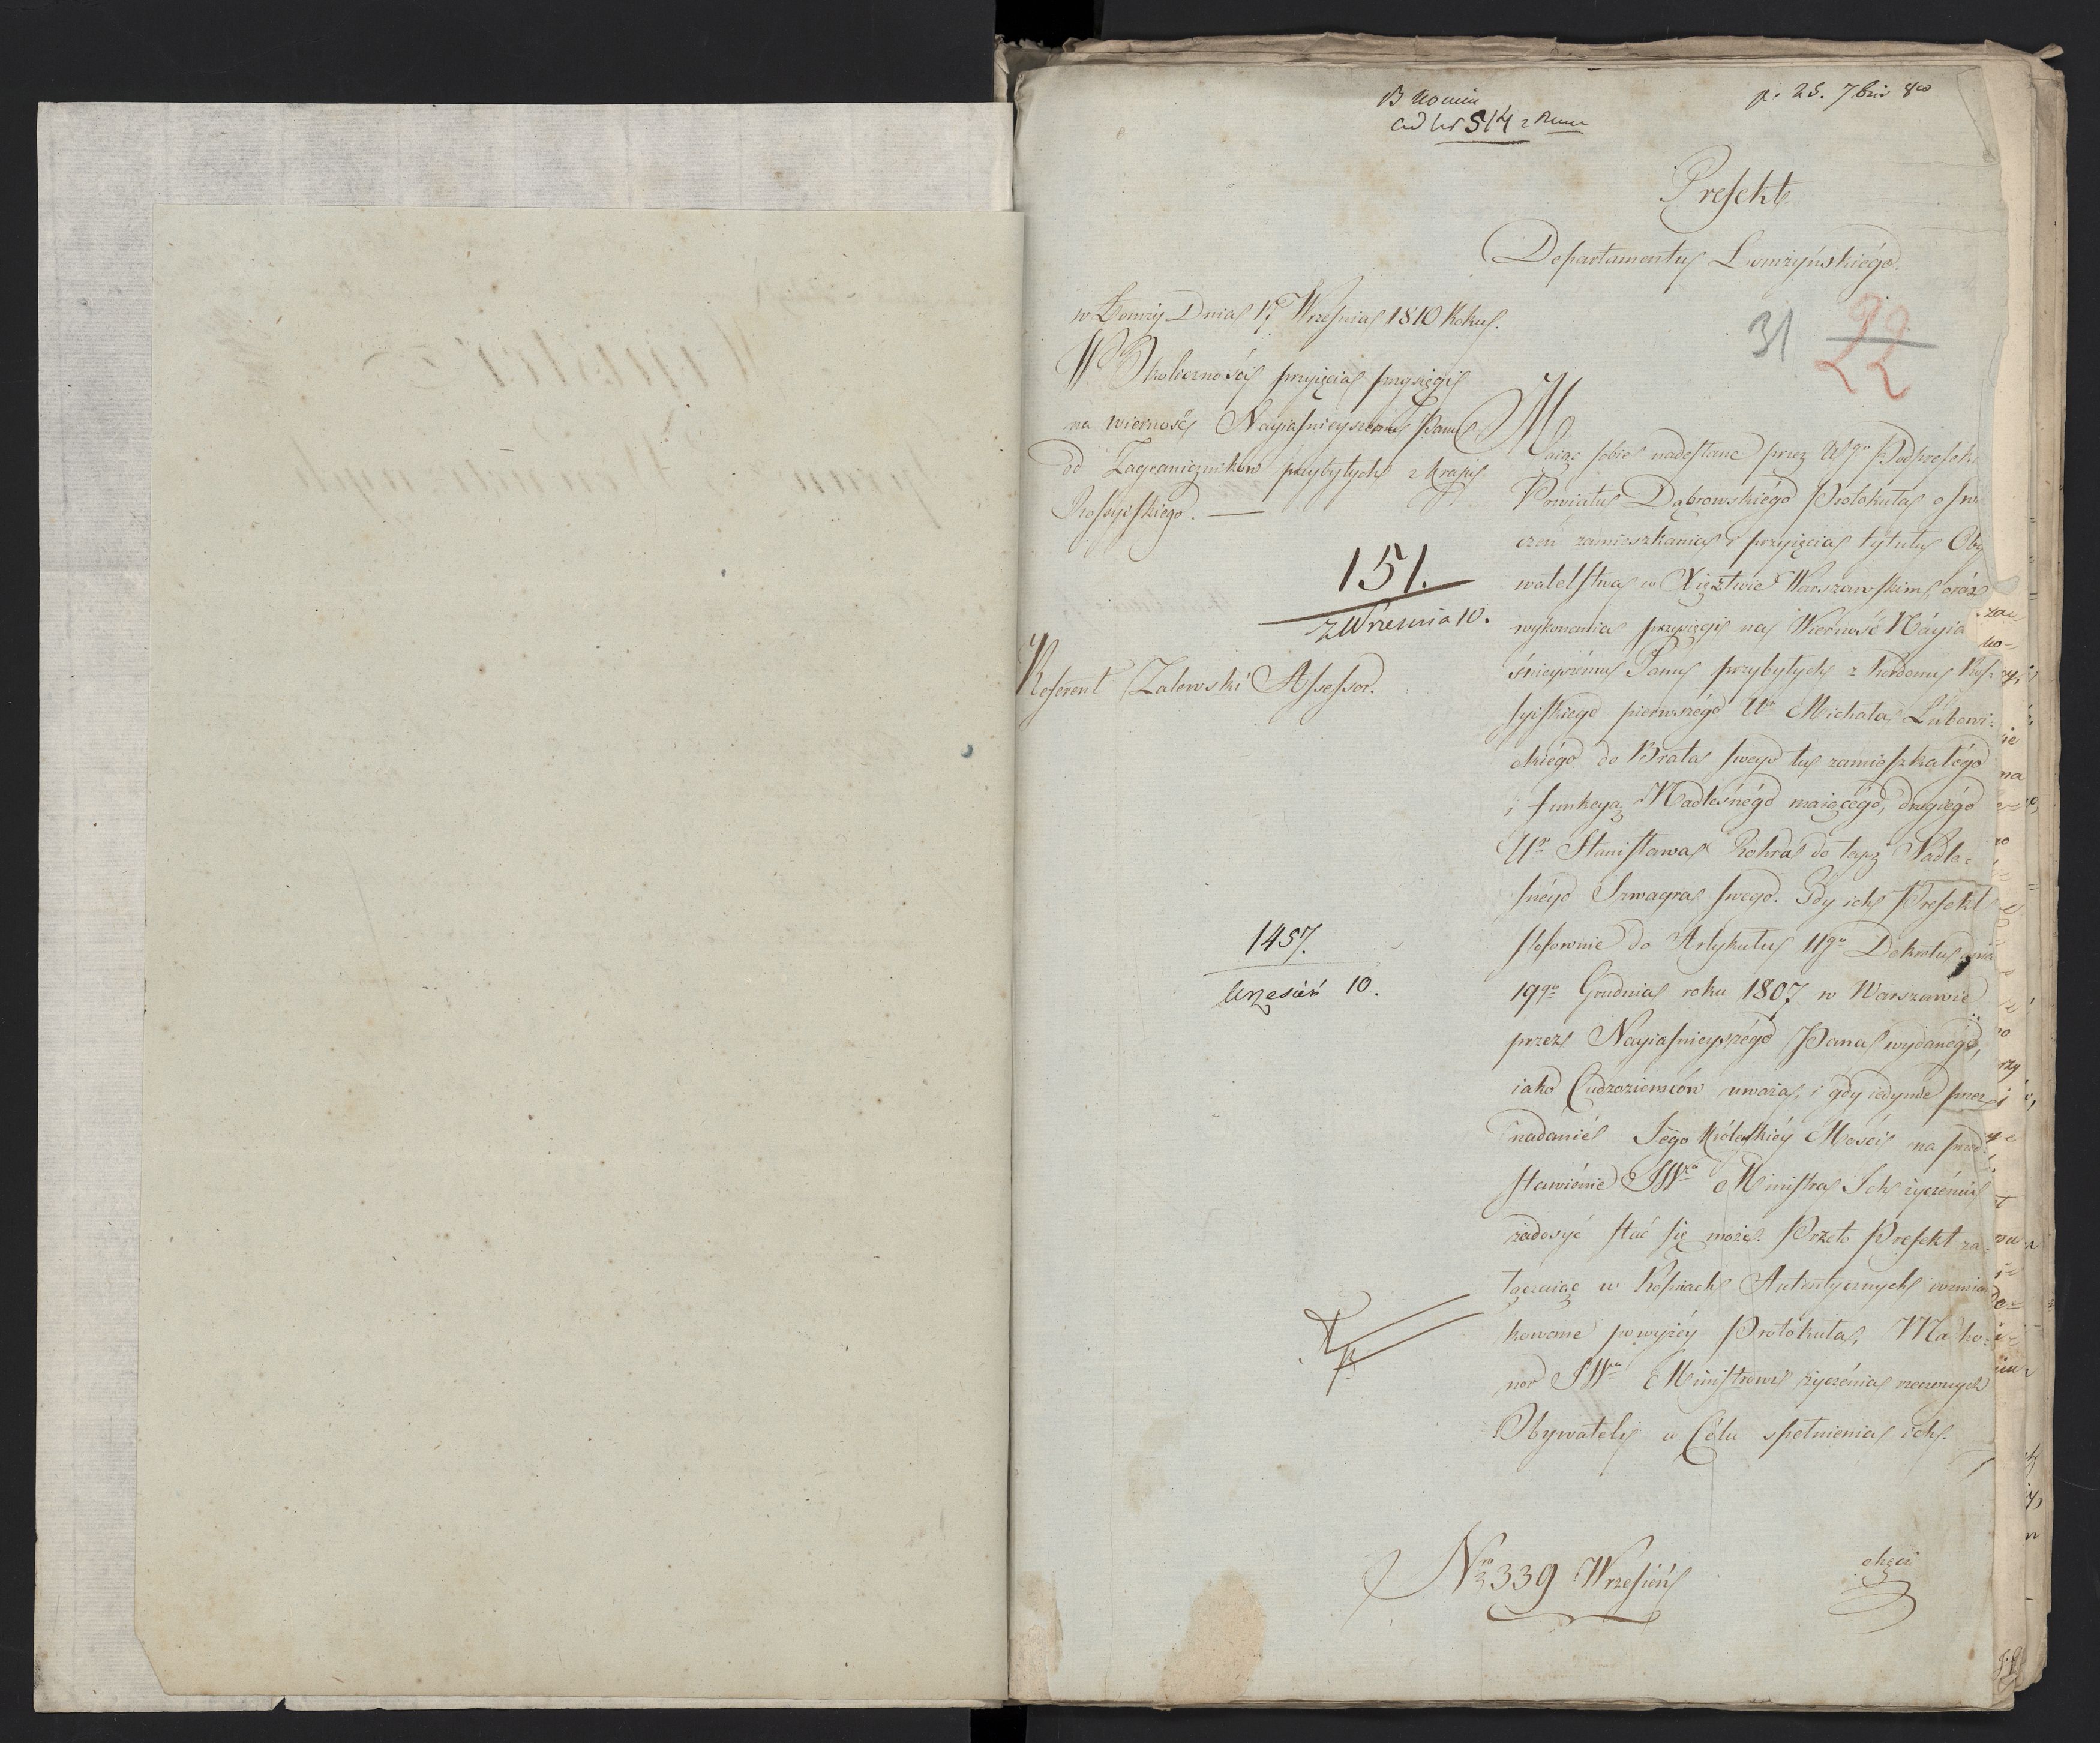 p. 25. 7bris 810
ad Nr 514
Prefekt
Departamentu Łomżyńskiégo.
w Łomży Dnia 17 Wrzesnia 1810 Roku.
31 22
W Okolicznosci przyięcia przysięgi
na wiernosć Nayiasnieyszemu Panu
od Zagraniczników przybyłych z kraju
Rossyiskiego. —
151.
z Wrzesnia 10.
Referent Zalewski Assessor.
1457.
Wrzesień 10.
Maiąc sobie nadesłane przez Wgo Podprefek
Powiatu Dąbrowskiégo Protokuła o
czeń zamieszkania i przyięcia tytułu Oby
watelstwa w Xięztwie Warszawskim, oráz
wykonania przysięgi na Wierność Náyia
śnieyszému Panu przybyłych z kordonu Ros
syiskiego pierwszégo Uo Michała Lubowi:
ckiégo do Brata swego tu zamieszkałégo
i funkcyą Nadleśnégo maiącégo, drugiégo
Uo Stanisława Rohra do tegż Nadle:
śnégo Szwagra swego. Gdy ich Prefekt
stosownie do Artykułu 11go Dekretu dnia
19go Grudnia roku 1807 w Warszawie
przez Nayiasnieyszégo Pana wydanégo,
iako Cudzoziemców uważa, i gdy iedynie przez
nadanié Jégo Królewskiéy Mości na przed
stawiénie JWo Ministra Ich życzéniu
zadosyć stać się może. Przeto Prefekt za:
łączaiąc w Kopiach Autentycznych wzmian
kowane powyżéy Protokuła, Ma ho:
nor JWu Ministrowi życzénia rzeczonych
Obywateli w Célu spełnienia ich.
Nro 339 Wrzesień
chęci